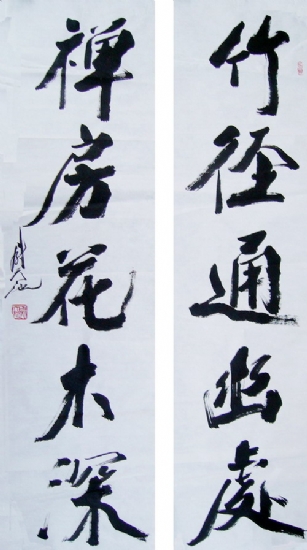 竹径通幽處
禅房花木深